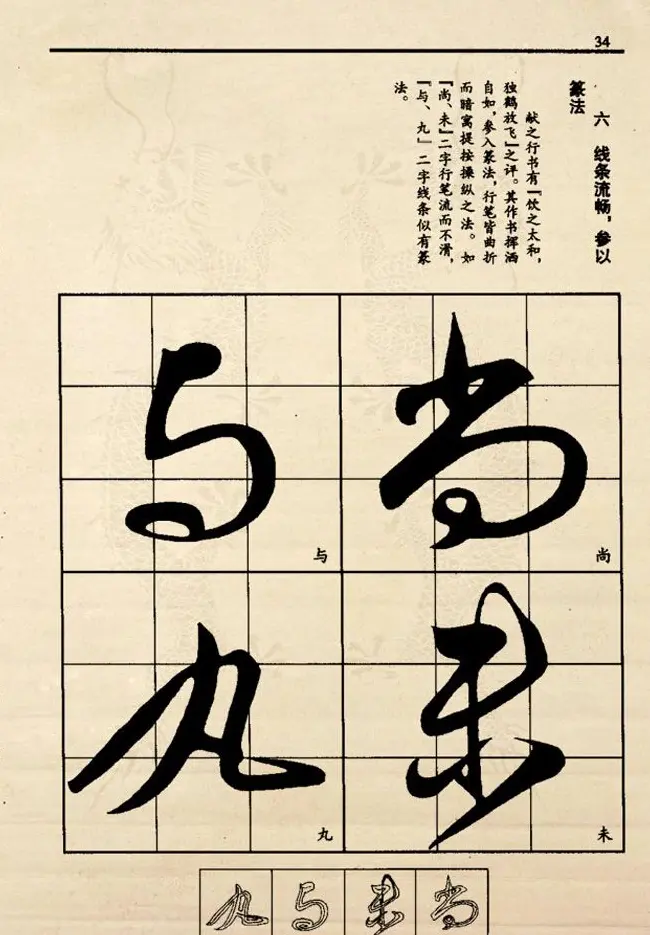 34
六 线条流畅，参以
篆法
献之行书有『饮之太和，
独鹤放飞』之评。其作书挥洒
自如，参入篆法，行笔皆曲折
而暗寓提按操纵之法。如
『尚、未』二字行笔流而不滑，
『与、九』二字线条似有篆
法。
尚
未
与
九
尚
未
与
九
尚
未
与
九